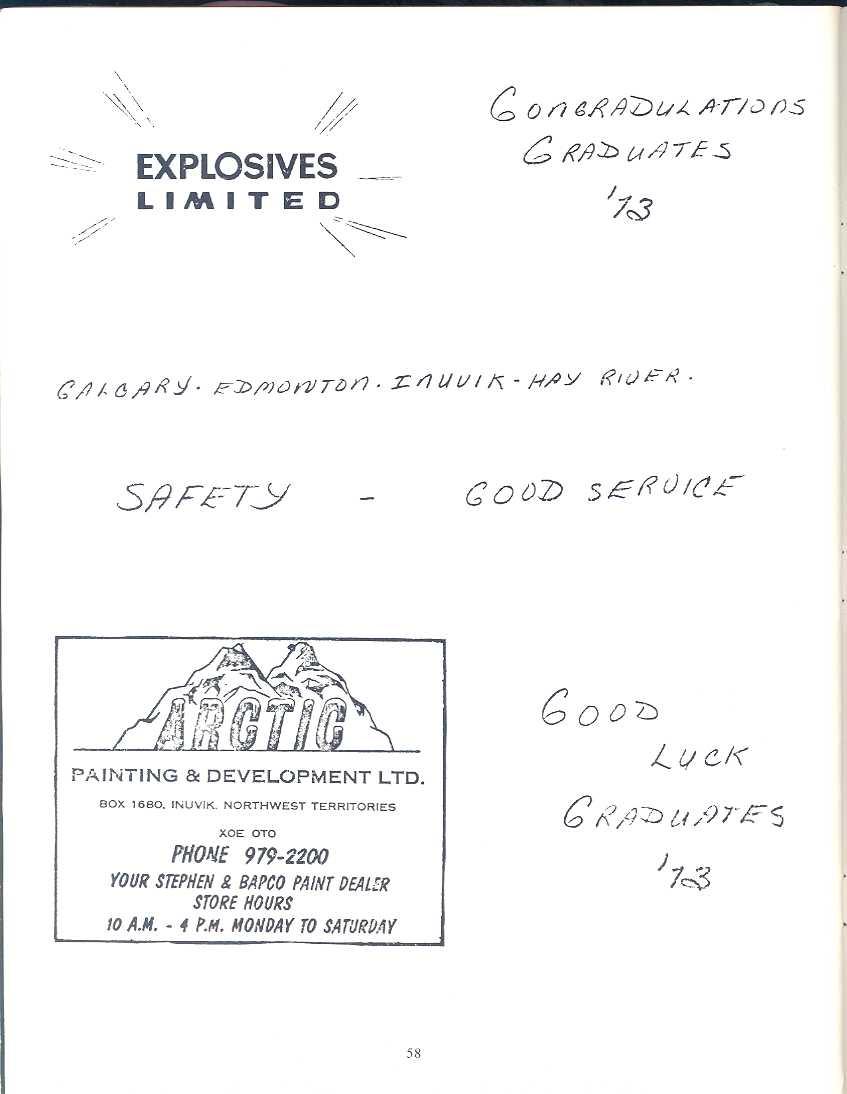 EXPLOSIVES
LIMITED
CONGRADULATIONS
GRADUATES
'73
CALGARY. EDMONTON. INUVIK - HAY RIVER.
SAFETY - GOOD SERVICE
ARCTIC
PAINTING & DEVELOPMENT LTD.
BOX 1680, INUVIK, NORTHWEST TERRITORIES
XOE OTO
PHONE 979-2200
YOUR STEPHEN & BAPCO PAINT DEALER
STORE HOURS
10 A.M. - 4 P.M. MONDAY TO SATURDAY
GOOD
LUCK
GRADUATES
'73
58